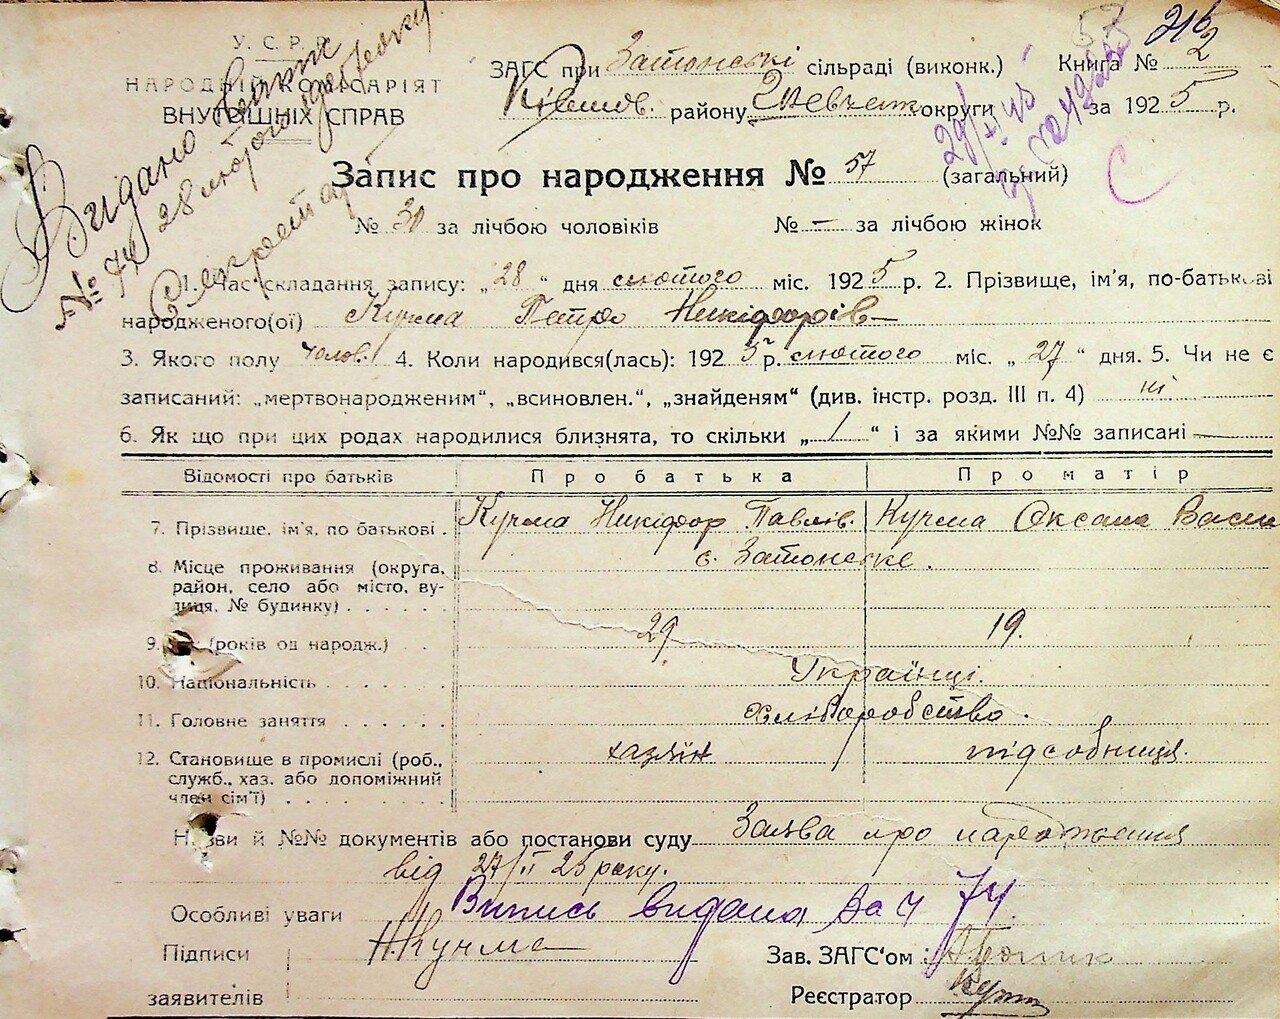 У. С. Р. Р.
НАРОДНІЙ КОМІСАРІЯТ
ВНУТРІШНІХ СПРАВ
Видано
№ 74 28 лютого
Секретар
57
216
ЗАГС при Затонські сільраді (виконк.) Книга № 2
району Шевчат округи за 1925 р.
Запис про народження № 57 (загальний)
С
№ 30 за лічбою чоловіків № — за лічбою жінок
1. Час складання запису: „28“ дня лютого міс. 1925 р. 2. Прізвище, ім'я, по-батькові
народженого(ої) Кучма Петро Никіфорів
3. Якого полу чолов. 4. Коли народився(лась): 1925 р. лютого міс. „27“ дня. 5. Чи не є
записаний: „мертвонародженим“, „всиновлен.“, „знайденям“ (див. інстр. розд. III п. 4) ні
6. Як що при цих родах народилися близнята, то скільки „1“ і за якими №№ записані —
Відомості про батьків Про батька Про матір
7. Прізвище, ім'я, по батькові . Кучма Никіфор Павлів. Кучма Оксана Васи
8. Місце проживання (округа, с. Затонське.
район, село або місто, ву-
лиця, № будинку) . . . . . .
9. Вік (років од народж.) 29 19.
10. Національність . . . . . Українці.
11. Головне заняття . . . . . хліборобство.
12. Становище в промислі (роб., хазяїн підсобниця.
служб., хаз. або допоміжний
член сім'ї) . . . . . . . .
Назви й №№ документів або постанови суду Заява про народження
від 27/II 25 року.
Особливі уваги Випись видана за ч 74.
Підписи Н. Кучма Зав. ЗАГС'ом :
заявителів Реєстратор